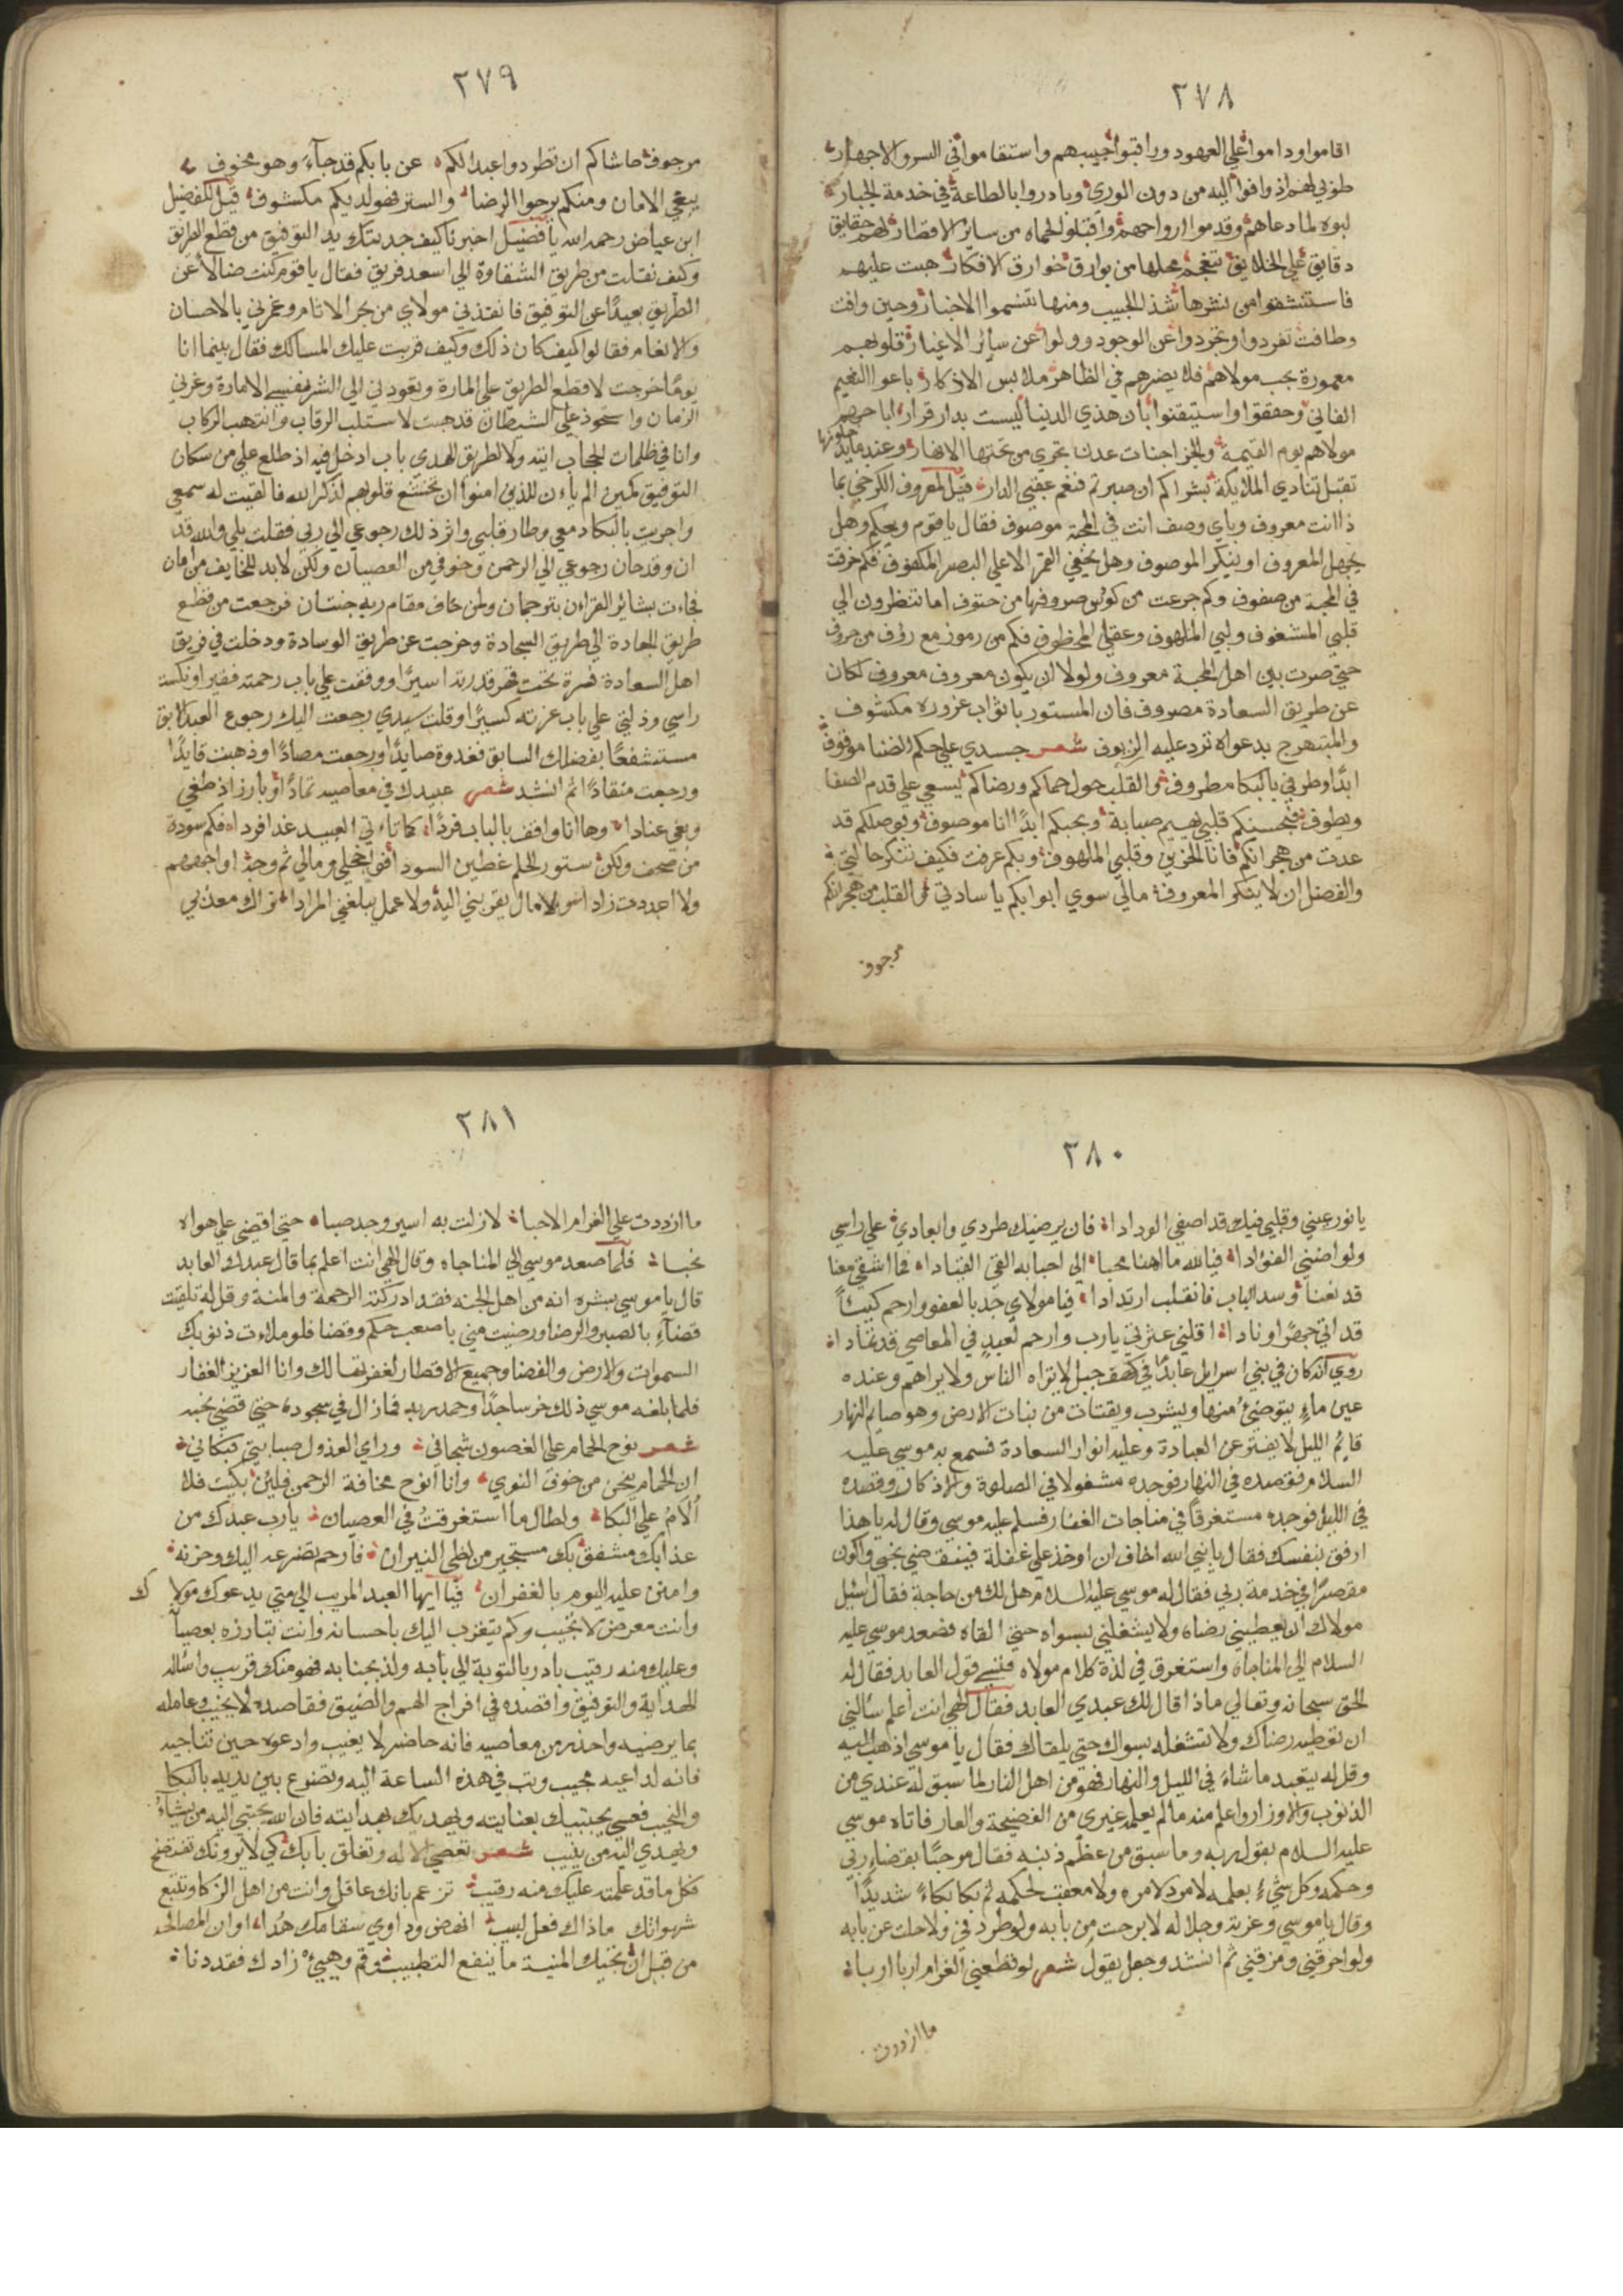 ٢٧٨
اقاموا وداموا علي العهود وراقبوا حبيبهم واستقاموا في السر والاجهار
طوبي لهم اذ وافوا اليه من دون الوري وبادروا بالطاعة في خدمة الجبار
لبوه لما دعاهم وقدموا ارواحهم واقبلوا لحماه من ساير الاقطار لهم حقايق
دقايق علي الخلايق تنعجم محلها من بوارق خوارق الافكار هبت عليهم
فاستنشقوا من نشرها شذ الحبيب ومنها تنسموا الاخبار وحين وافت
وطافت تفردوا وتجردوا عن الوجود وولوا عن سائر الاغيار قلوبهم
معمورة بحب مولاهم فلا يضرهم في الظاهر ملابس الاذكار باعوا النعيم
الفاني وحققوا واستيقنوا بان هذي الدنيا ليست بدار قرار اباحهم
مولاهم يوم القيمة والجزا جنات عدن تجري من تحتها الانهار وعند ما يدخلونها
تقبل تنادي الملايكة بشراكم ان صبرتم فنعم عقبي الدار قيل لمعروف الكرخي بما
ذا انت معروف وباي وصف انت في المحبة موصوف فقال يا قوم ويحكم وهل
يجهل المعروف او ينكر الموصوف وهل يخفي القمر الا علي البصير المكفوف فكم خرقت
في المحبة من صفوف وكم جرعت من كوس صروفها من حتوف اما تنظرون الي
قلبي المشغوف ولبي الملهوف وعقلي المخطوف فكم من رموز مع رؤف من حروف
حتي صرت بين اهل المحبة معروف ولولا ان يكون معروف معروف لكان
عن طريق السعادة مصروف فان المستور باثواب غروره مكشوف
والمتبهرج بدعواه ترد عليه الزيوف شعر جسدي علي حكم الضنا موقوف
ابدا وطرفي بالبكا مطروف والقلب حول حماكم ورضاكم يسعي علي قدم الصفا
ويطوف فبحسنكم قلبي يهيم صبابة وبحبكم ابدا انا موصوف وبوصلكم قد
عدت من هجرانكم فانا الحزين وقلبي الملهوف وبكم عرفت فكيف تنكر حالتي
والفضل ان لا ينكر المعروف مالي سوي ابوابكم يا سادتي والقلب من هجرانكم
مرجوف
٢٧٩
مرجوف حاشاكم ان تطردوا عبدا لكم عن بابكم قد جآء وهو مخوف
يبغي الامان ومنكم يرجوا الرضا والستر فهو لديكم مكشوف قيل للفضيل
ابن عياض رحمه الله يا فضيل اخبرنا كيف جذبتك يد التوفيق من قطع الطريق
وكيف نقلت من طريق الشقاوة الي اسعد فريق فقال يا قوم كنت ضالا عن
الطريق بعيدا عن التوفيق فانقذني مولاي من بحر الاثام وغمرني بالاحسان
والانعام فقالوا كيف كان ذلك وكيف قربت عليك المسالك فقال بينما انا
يوما خرجت لاقطع الطريق علي المارة وتقودني الي الشر نفسي الامارة وغرني
الزمان واستحوذ علي الشيطان قد جيت لاستلب الرقاب وانتهب الركاب
وانا في ظلمات الحجاب ايته ولا لطريق الهدي باب ادخل فيه اذ طلع علي من سكان
التوفيق كمين الم يان للذين امنوا ان تخشع قلوبهم لذكر الله فالقيت له سمعي
واجريت بالبكاء دمعي وطار قلبي واثر ذلك رجوعي الي ربي فقلت بلي والله قد
ان وقد حان رجوعي الي الرحمن وخوفي من العصيان ولكن لابد للخايف من امان
فجاءت بشائر القراءن بترجمان ولمن خاف مقام ربه جنتان فرجعت من قطع
طريق العادة الي طريق السجادة وخرجت عن طريق الوسادة ودخلت في فريق
اهل السعادة فسرة تحت قهر قدرته اسيرا ووقفت علي باب رحمته فقيرا ونكست
راسي وذلتي علي باب عزته كسيرا وقلت سيدي رجعت اليك رجوع العبد الابق
مستشفعا بفضلك السابق فغدوة صايدا ورجعت مصادا وذهبت قايدا
ورجعت منقادا ثم انشد شعر عبيدك في معاصيه تمادا وبارز اذ طغي
وبغي عنادا وها انا واقف بالباب فردا كما تاءتي العبيد غدا فردا فكم سودة
من صحف ولكن ستور الحلم غطين السودا فوا خجلي ومالي ثم وجه اواجههم
ولا اعددت زادا ولا مال يقربني اليه ولا عمل يبلغني المرادا تراك معذبي
٢٨٠
يا نور عيني وقلبي فيك قد اصفي الودادا فان يرضيك طردي وابعادي علي راسي
ولو اضني الفؤادا فيالله ما اهنا محبا الي احبابه القي القيادا فما اشقي معنا
قد تعنا وسد الباب فانقلب ارتدادا فيا مولاي جد بالعفو وارحم كئيبا
قد اتي جهرا ونادا اقلني عثرتي يارب وارحم لعبد في المعاصي قد تمادا
روي انه كان في بني اسرايل عابدا في كهف جبل لا يراه الناس ولا يراهم وعنده
عين ماء يتوضئ منها ويشرب ويقتات من نبات الارض وهو صايم النهار
قايم الليل لا يفتر عن العبادة وعليه انوار السعادة فسمع به موسي عليه
السلام فقصده في النهار فوجده مشغولا في الصلوة والاذكار وقصده
في الليل فوجده مستغرقا في مناجات الغفار فسلم عليه موسي وقال له يا هذا
ارفق بنفسك فقال يا نبي الله اخاف ان اوخذ علي غفلة فينقضي نحبي واكون
مقصرا في خدمة ربي فقال له موسي عليه السلام هل لك من حاجة فقال اسئل
مولاك ان يعطيني رضاه ولا يشغلني بسواه حتي القاه فصعد موسي عليه
السلام الي المناجاة واستغرق في لذة كلام مولاه فنسي قول العابد فقال له
الحق سبحانه وتعالي ماذا قال لك عبدي العابد فقال الهي انت اعلم سئالني
ان تعطيه رضاك ولا تشغله بسواك حتي يلقاك فقال يا موسي اذهب اليه
وقل له يتعبد ما شاء في الليل والنهار فهو من اهل النار لما سبق له عندي من
الذنوب والاوزار واعلم منه مالم يعلمه غيري من الفضيحة والعار فاتاه موسي
عليه السلام بقول ربه وما سبق من عظم ذنبه فقال مرحبا بقضاء ربي
وحكمه وكل شيء بعلمه لا مرد لامره ولا معقب لحكمه ثم بكا بكاء شديدا
وقال يا موسي وعزته وجلاله لا برحت من بابه ولو طردني ولا حلت عن بابه
ولو احرقني ومزقني ثم انشد وجعل يقول شعر لو قطعني الغرام اربا اربا
ما ازددت
٢٨١
ما ازددت علي الغرام الا حبا لا زلت به اسير وجد صبا حتي اقضي علي هواه
نحبا فلما صعد موسي الي المناجاه وقال الهي انت اعلم بما قال عبدك العابد
قال يا موسي بشره انه من اهل الجنه فقد ادركته الرحمة والمنة وقل له تلقيت
قضآء بالصبر والرضا ورضيت مني باصعب حكم وقضا فلو ملاءت ذنوبك
السموات والارض والفضا وجميع الاقطار لغفرتها لك وانا العزيز الغفار
فلما بلغه موسي ذلك خر ساجدا وحمد ربه فما زال في سجوده حتي قضي نحبه
شعر نوح الحمام علي الغصون شجاني وراي العذول صبابتي فبكاني
ان الحمام ينحن من خوف النوي وانا انوح مخافة الرحمن فلئن بكيت فلا
الام علي البكا ولطال ما استغرقت في العصيان يارب عبدك من
عذابك مشفق بك مستجير من لظي النيران فارحم تضرعه اليك وحزنه
وامنن عليه اليوم بالغفران فيا ايها العبد المريب الي متي يدعوك مولاك
وانت معرض لا تجيب وكم يتقرب اليك باحسانه وانت تبارزه بعصيا
وعليك منه رقيب بادر بالتوبة الي بابه ولذ بجنابه فهو منك قريب واساله
الهداية والتوفيق واقصده في افراج الهم والضيق فقاصده لا يخيب وعامله
بما يرضيه واحذر من معاصيه فانه حاضر لا يغيب وادعوه حين تناجيه
فانه لداعيه مجيب وتب في هذه الساعة اليه وتضرع بين يديه بالبكا
والنحيب فعسي يجتبيك بعنايته ويهديك بهدايته فان الله يجتبي اليه من يشآء
ويهدي اليه من ينيب شعر تعصي الاله وتغلق بابك كي لا يرونك تفتضح
فكل ما قد علمته عليك منه رقيب تزعم بانك عاقل وانت من اهل الزكا وتتبع
شهواتك ماذاك فعل لبيب انهض وداوي سقامك هدا اوان المصالحه
من قبل ان تجيك المنية ما ينفع التطبيب وقم وهيئ زادك فقد دنا